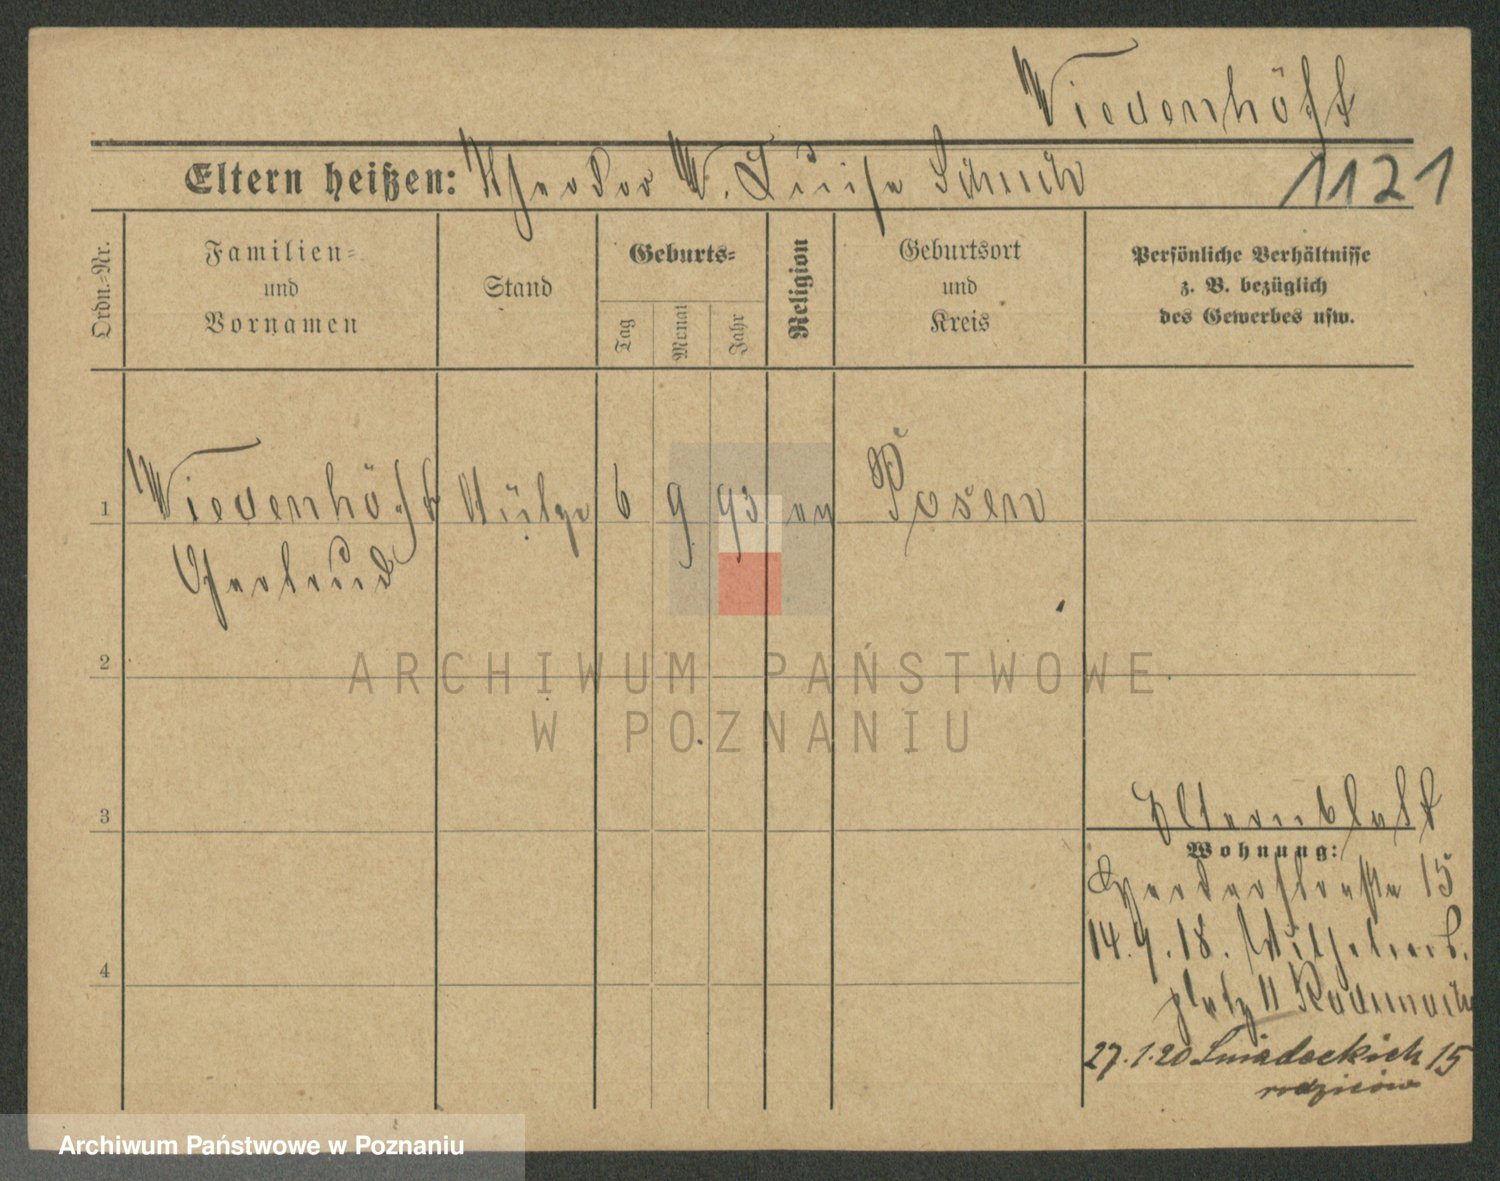 Wiedenhöft
Eltern heißen: Theodor W. Luise Schuch
1121
Ordn.=Nr.
Familien= und Vornamen
Stand
Geburts=
Tag
Monat
Jahr
Religion
Geburtsort und Kreis
Persönliche Verhältnisse
z. B. bezüglich
des Gewerbes usw.
1 Wiedenhöft 6 9 93 ev Posen
Gertrud
2
3
4
Elternblatt
Wohnung:
Herderstraße 15
14.9.18. Wilhelms.
platz 11
27.1.20 Śniadeckich 15
rodziców
ARCHIWUM PAŃSTWOWE
W POZNANIU
Archiwum Państwowe w Poznaniu